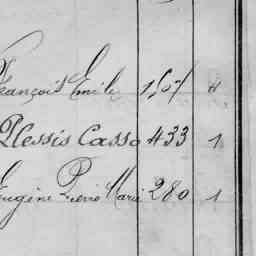 François Emile 1507 4
Plessis Casso 433 1
Eugène Pierre Marie 280 1